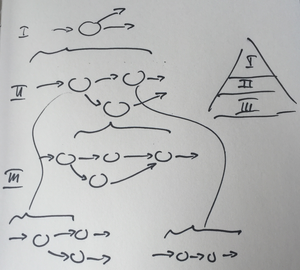 I
I
II
II
III
III